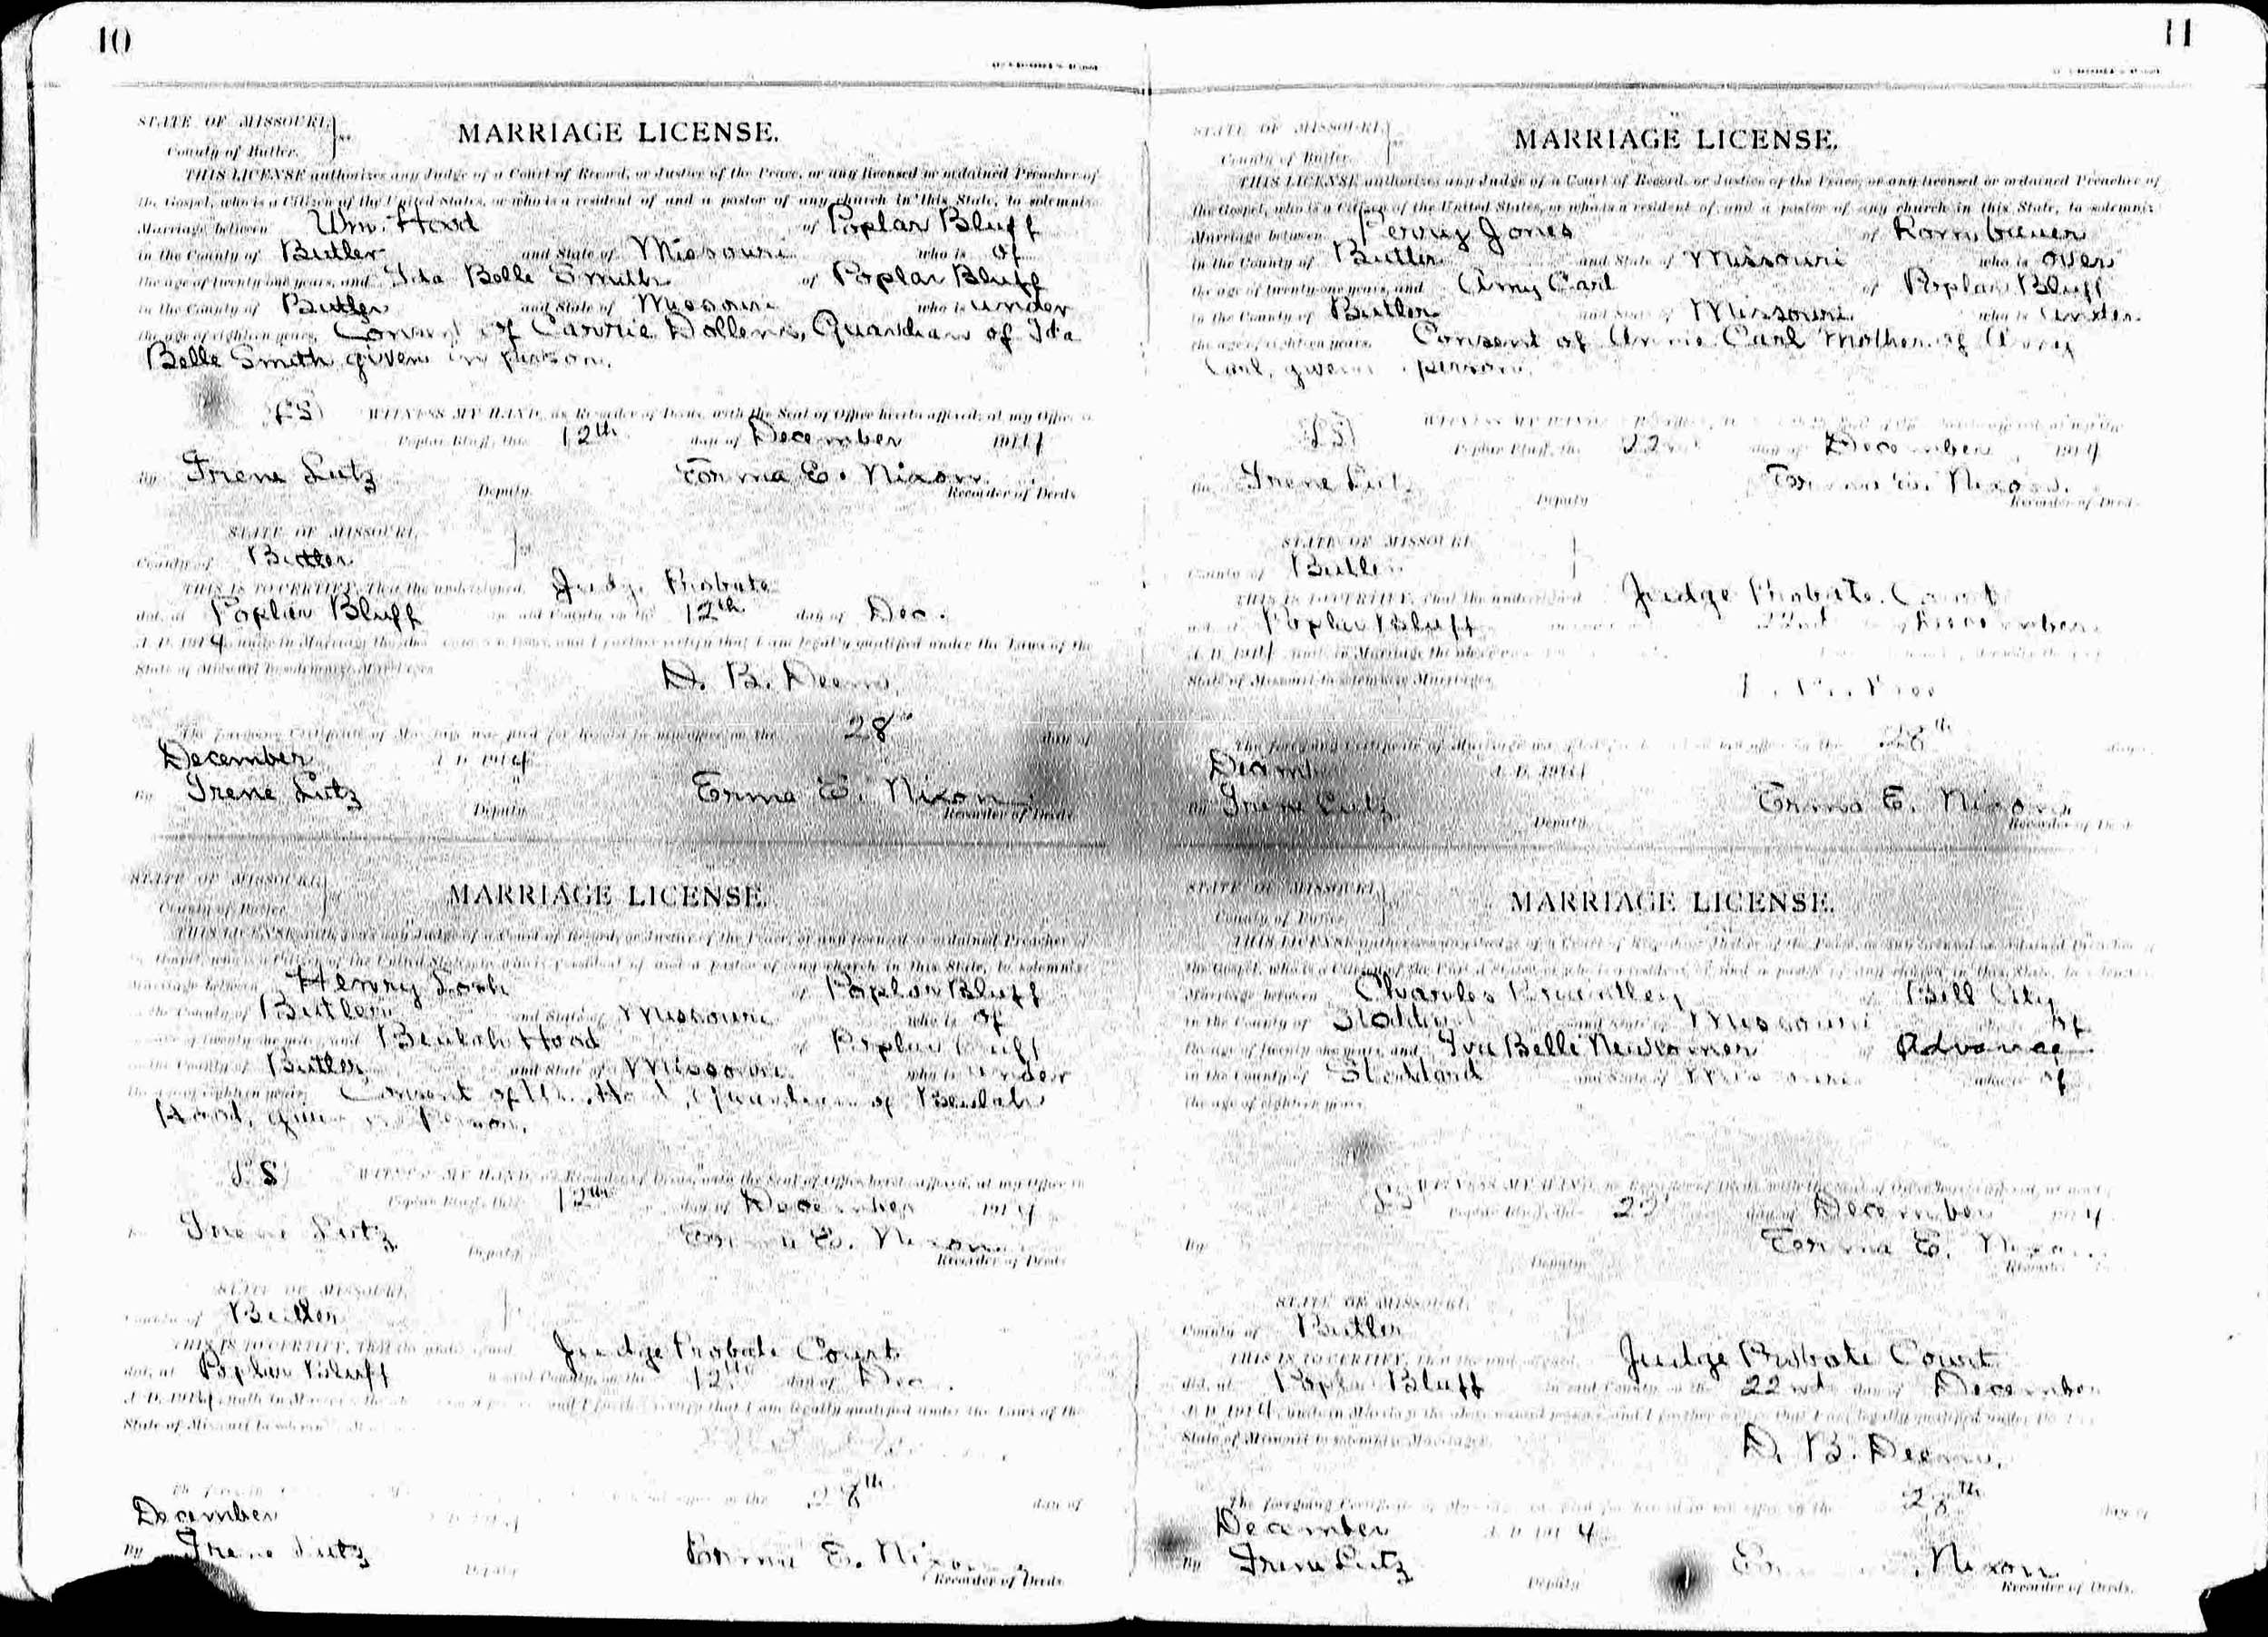 10
STATE OF MISSOURI, ss.
County of Butler.
MARRIAGE LICENSE.
THIS LICENSE authorizes any Judge of a Court of Record, or Justice of the Peace, or any licensed or ordained Preacher of
the Gospel, who is a Citizen of the United States, or who is a resident of and a pastor of any church in this State, to solemnize
Marriage between Wm. Hood of Poplar Bluff
in the County of Butler and State of Missouri who is of
the age of twenty-one years, and Ida Belle Smith of Poplar Bluff
in the County of Butler and State of Missouri who is under
the age of eighteen years. Consent of Carrie Dollens, Guardian of Ida
Belle Smith given in person.
(LS) WITNESS MY HAND, as Recorder of Deeds, with the Seal of Office hereto affixed, at my Office in
Poplar Bluff, this 12th day of December 1914
By Irene Lutz Deputy. Erma E. Nixon Recorder of Deeds
STATE OF MISSOURI,
County of Butler
THIS IS TO CERTIFY, That the undersigned Judge Probate
did, at Poplar Bluff in said County, on the 12th day of Dec.
A. D. 1914 unite in Marriage the above named persons, and I further certify that I am legally qualified under the Laws of the
State of Missouri to solemnize Marriages
D. B. Deem
The foregoing Certificate of Marriage was filed for Record in my office on the 28th day of
December A. D. 1914
By Irene Lutz Deputy Erma E. Nixon Recorder of Deeds
STATE OF MISSOURI,
County of Butler
MARRIAGE LICENSE.
THIS LICENSE authorizes any Judge of a Court of Record, or Justice of the Peace, or any licensed or ordained Preacher of
the Gospel, who is a Citizen of the United States, or who is a resident of and a pastor of any church in this State, to solemnize
Marriage between Henry of Poplar Bluff
in the County of Butler and State of Missouri who is of
the age of twenty-one years, and Beulah Hood of Poplar Bluff
in the County of Butler and State of Missouri who is under
the age of eighteen years. Consent of Wm. Hood, Guardian of Beulah
Hood, given in Person.
(LS) WITNESS MY HAND, as Recorder of Deeds, with the Seal of Office hereto affixed, at my Office in
Poplar Bluff, this 12th day of December 1914
Irene Lutz Deputy Erma E. Nixon Recorder of Deeds
STATE OF MISSOURI,
County of Butler
THIS IS TO CERTIFY, That the undersigned Judge Probate Court
did, at Poplar Bluff in said County, on the 12th day of Dec.
A. D. 1914 unite in Marriage the above named persons and I further certify that I am legally qualified under the Laws of the
State of Missouri to solemnize
28th day of
December
By Irene Lutz Deputy Erma E. Nixon Recorder of Deeds
11
STATE OF MISSOURI,
County of Butler.
MARRIAGE LICENSE.
THIS LICENSE authorizes any Judge of a Court of Record, or Justice of the Peace, or any licensed or ordained Preacher of
the Gospel, who is a Citizen of the United States, or who is a resident of and a pastor of any church in this State, to solemnize
Marriage between Perry Jones of
in the County of Butler and State of Missouri who is over
the age of twenty-one years, and Amy Carl of Poplar Bluff
in the County of Butler and State of Missouri who is under
the age of eighteen years. Consent of Annie Carl Mother of Amy
Carl, given person.
(LS) WITNESS MY HAND
Poplar Bluff, this 22nd day of December 1914
By Irene Lutz Deputy Erma E. Nixon. Recorder of Deeds
STATE OF MISSOURI
County of Butler
THIS IS TO CERTIFY, That the undersigned Judge Probate Court
did, at Poplar Bluff 22nd December
A. D. 1914 unite in Marriage the above
State of Missouri to solemnize Marriages.
The foregoing Certificate of Marriage was filed 28th day
December A. D. 1914
By Irene Lutz Deputy Erma E. Nixon Recorder of Deeds
STATE OF MISSOURI,
County of Butler
MARRIAGE LICENSE.
THIS LICENSE authorizes any Judge of a Court of Record, or Justice of the Peace, or any licensed or ordained Preacher of
the Gospel, who is a Citizen of the United States, or who is a resident of and a pastor of any church in this State, to solemnize
Marriage between Charles Brantley Bell City
in the County of and State of Missouri of
the age of twenty-one years, and Iva Belle Newcomer of Advance
in the County of Stoddard and State of Missouri who is of
the age of eighteen years.
(LS) WITNESS MY HAND, as Recorder of Deeds
Poplar Bluff, this 22 day of December 1914
By Deputy Erma E. Nixon Recorder
STATE OF MISSOURI,
County of Butler
THIS IS TO CERTIFY, That the undersigned Judge Probate Court
did, at Poplar Bluff in said County on the 22nd day of December
A. D. 1914, unite in Marriage the above named persons and I further certify that I am legally qualified under
State of Missouri to solemnize Marriages.
D. B. Deem.
The foregoing Certificate of Marriage was filed for Record in my office on the 28th day of
December A. D. 1914
By Irene Lutz Deputy Nixon Recorder of Deeds.